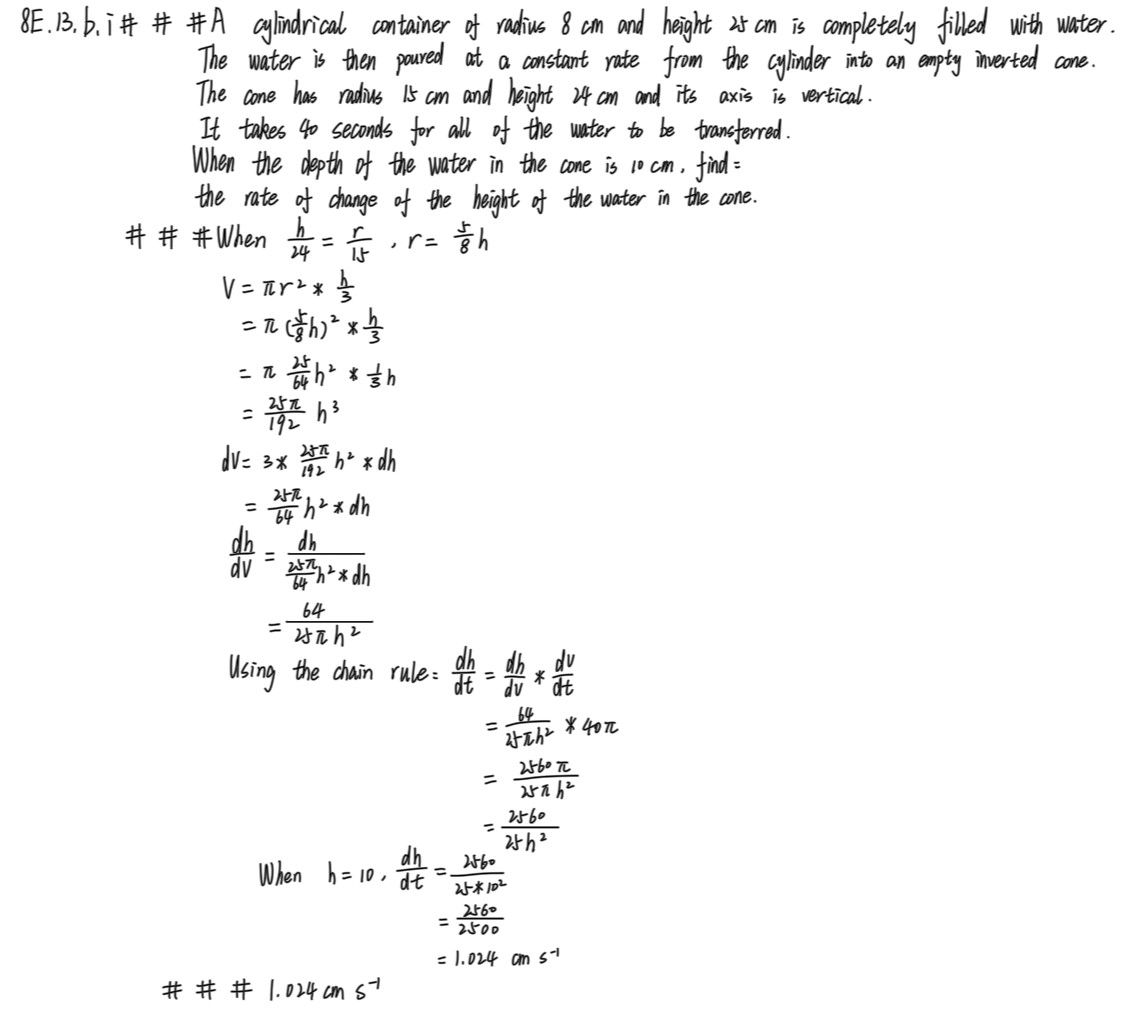 8E.13.b.i # # #A cylindrical container of radius 8 cm and height 25 cm is completely filled with water.
The water is then poured at a constant rate from the cylinder into an empty inverted cone.
The cone has radius 15 cm and height 24 cm and its axis is vertical.
It takes 40 seconds for all of the water to be transferred.
When the depth of the water in the cone is 10 cm, find:
the rate of change of the height of the water in the cone.
# # #When h/24 = r/15, r = 5/8 h
V = πr² * h/3
= π (5/8 h)² * h/3
= π 25/64 h² * 1/3 h
= 25π/192 h³
dV = 3 * 25π/192 h² * dh
= 25π/64 h² * dh
dh/dV = dh/(25π/64 h² * dh)
= 64/(25πh²)
Using the chain rule: dh/dt = dh/dV * dV/dt
= 64/(25πh²) * 40π
= 2560π/(25πh²)
= 2560/(25h²)
When h = 10, dh/dt = 2560/(25*10²)
= 2560/2500
= 1.024 cm s⁻¹
# # # 1.024 cm s⁻¹